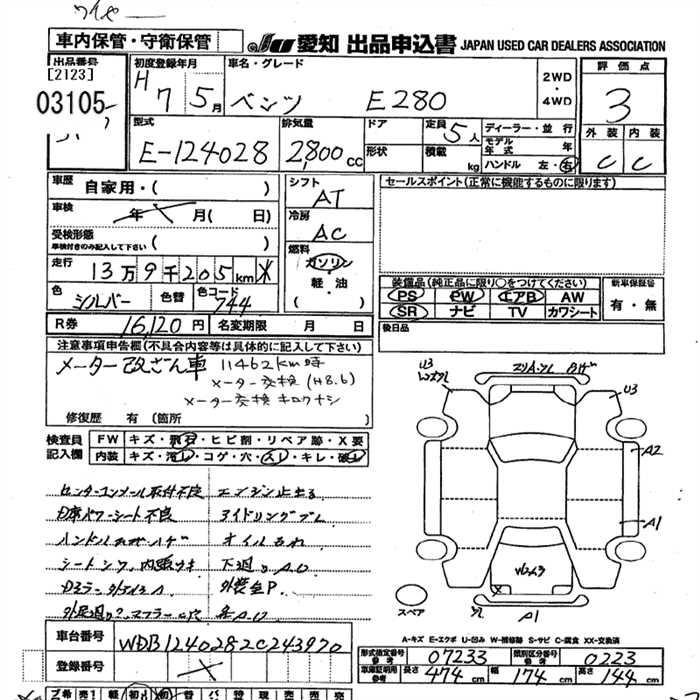 車内保管・守衛保管
愛知 出品申込書 JAPAN USED CAR DEALERS ASSOCIATION
出品番号
[2123]
03105
初度登録年月
H 7 5月
車名・グレード
ベンツ E280
2WD
・
4WD
評価点
3
外装 内装
C C
型式
E-124028
排気量
2,800cc
ドア
形状
定員 5人
積載 kg
ディーラー・並行
モデル年式 年
ハンドル 左・右
車歴
自家用・( )
車検
年 月( 日)
受検形態
車検付きのみ記入して下さい ( )
走行
13万9千205km
色
シルバー
色替
色コード
744
シフト
AT
冷房
AC
燃料
ガソリン
・
軽油
( )
セールスポイント(正常に機能するものに限ります)
装備品(純正品に限り○をつけてください)
PS PW エアB AW
SR ナビ TV カワシート
新車保証書
有・無
R券 16,120円 名変期限 月 日
後日品
注意事項申告欄(不具合内容等は具体的に記入して下さい)
メーター改ざん車 11462km時
メーター交換(H8.6)
メーター交換キロクナシ
修復歴 有(箇所 )
検査員
記入欄
FW キズ・飛石・ヒビ割・リペア跡・X要
内装 キズ・汚れ・コゲ・穴・スレ・キレ・破れ
センターコンソール取付不良 エンジン止まる
D席パワーシート不良 アイドリングブレ
オイルもれ
シートシワ、内張ウキ
外装金P.
U3
U3
A2
A1
A1
スペア
A-キズ E-エクボ U-凹み W-補修跡 S-サビ C-腐食 XX-交換済
車台番号 WDB1240282C243970
登録番号
形式指定番号
参考
07233
類別区分番号
参考
0223
車庫証明用
参考
長さ 474cm 幅 174cm 高さ 144cm